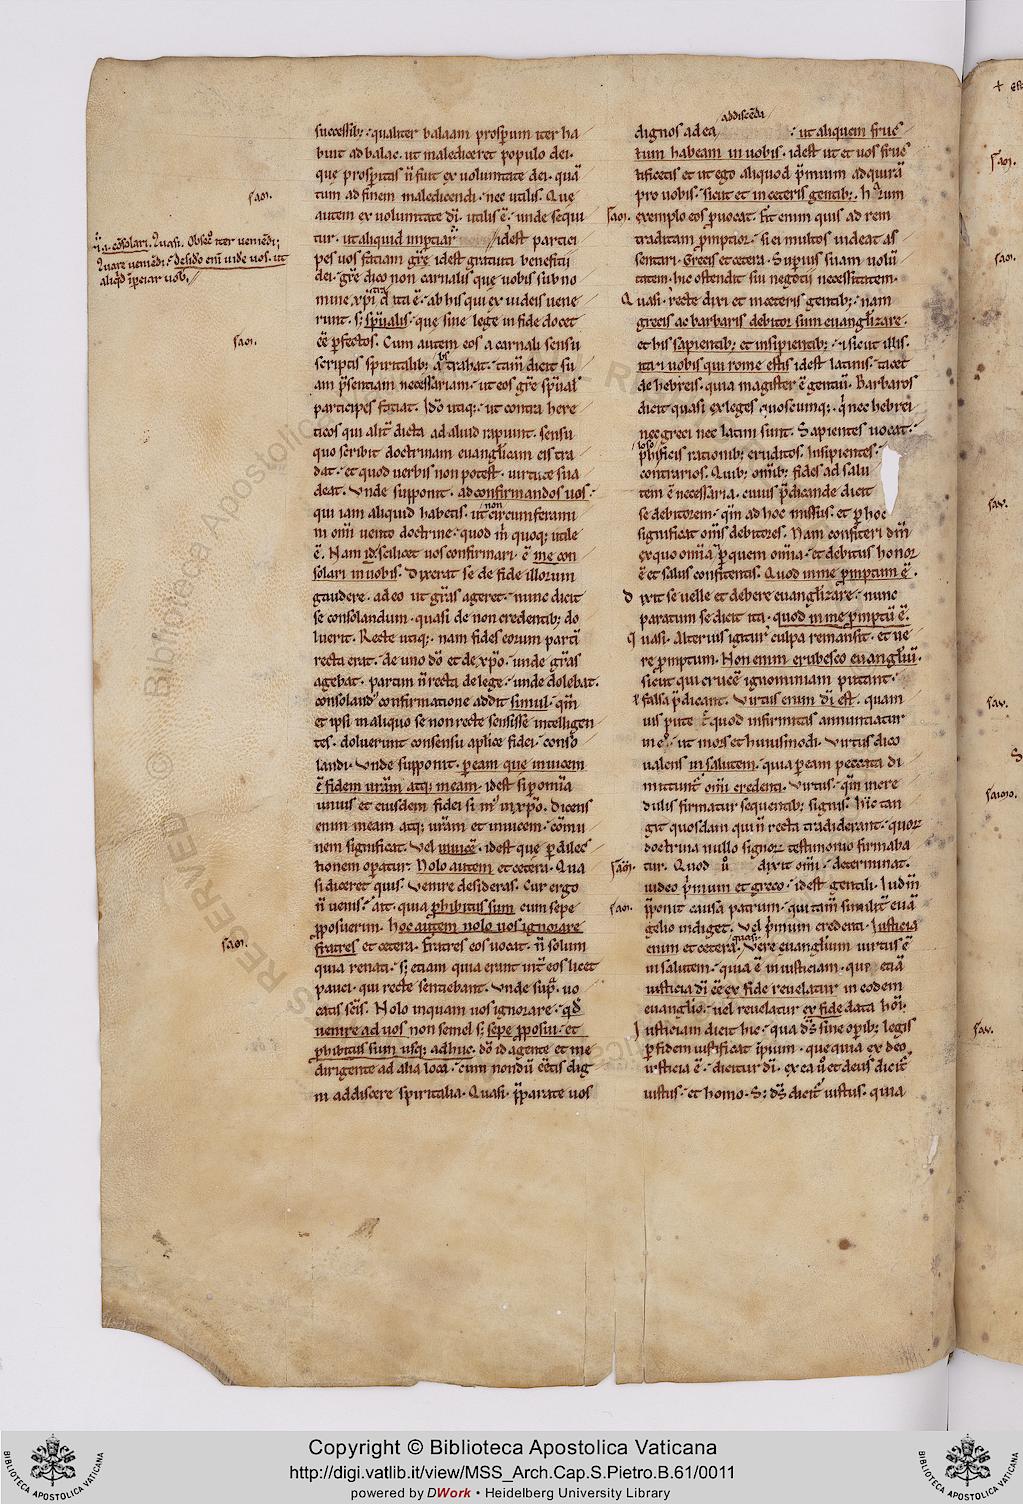 successib; qualiter balaam prosperum iter ha
buit ad balac. ut malediceret populo dei.
que prosperitas n̄ fuit ex uoluntate dei. quā
tum ad finem maledicendi. nec utilis. Que
autem ex uoluntate dī. utilis ē. unde sequi
tur. ut aliquid imptiar idest partici
pes uos faciam grē idest gratuiti beneficii
dei. grē dico non carnalis que uobis sub no
mine xp̄i dicta ē. ab his qui ex iudeis uene
runt. s; spūalis. que sine lege in fide docet
ēē pfectos. Cum autem eos a carnali sensu
scriptis spiritalib; abstrahat. tam̄ dicit su
am p̄sentiam necessariam. ut eos grē spūal
participes faciat. Idō utiq;. ut contra here
ticos qui alit̄ dicta ad aliud rapiunt. sensu
quo scribit doctrinam euanglicam eis tra
dat. et quod uerbis non potest. uirtute sua
deat. Unde supponit. ad confirmandos uos.
qui iam aliquid habetis. ut non circumferami
ni omī uento doctrine. quod m̄ quoq; utile
ē. Nam id scilicet uos confirmari. ē me con
solari in uobis. Dixerat se de fide illorum
gaudere. adeo ut grās ageret. nunc dicit
se consolandum. quasi de non credentib; do
luerit. Recte utiq;. nam fides eorum partī
recta erat. de uno dō et de xp̄o. unde grās
agebat. partim n̄ recta de lege. unde dolebat.
consoland confirmatione addit simul. qm̄
et ipsi in aliquo se non recte sensisse intelligen
tes. doluerunt consensu aplice fidei. conso
landi. Unde supponit. p eam que inuicem
ē fidem urām atq; meam. idest si p omīa
unius et eiusdem fidei sim in xp̄o. Dicens
enim meam atq; urām et inuicem. cōmu
nem significat. Vel inuicē. idest que p dilec
tionem operatur. Nolo autem et cetera. Qua
si diceret quis. Venire desideras. Cur ergo
n̄ uenis. ait. quia phibitus sum cum sepe
pposuerim. hoc autem nolo uos ignorare
fratres et cetera. Fratres eos uocat. n̄ solum
quia renati. s; etiam quia erant int̄ eos licet
pauci. qui recte sentiebant. Unde sup̄. uo
catis scīs. Nolo inquam uos ignorare. qd
uenire ad uos non semel s; sepe pposui. et
phibitus sum usq; adhuc. dō id agente et me
dirigente ad alia loca. cum nondū ēētis dig
ni addiscere spiritalia. Quasi. p̄parate uos
addiscēda
dignos ad ea ut aliquem fruc
tum habeam in uobis. idest ut et uos fruc
tificetis et ut ego aliquod p̄mium adquirā
pro uobis. sicut et in ceteris gentib;. harum
exemplo eos puocat. Fit enim quis ad rem
traditam pmptior. si ei multos uideat as
sentari. Grecis et cetera. Supius suam uolū
tatem. hic ostendit sui negocii necessitatem.
Quasi. recte dixi et in ceteris gentib;. nam
grecis ac barbaris debitor sum euanglizare.
et his sapientib; et insipientib;. i sicut illis.
ita et uobis qui rome estis idest latinis. tacet
de hebreis. quia magister ē gentiū. Barbaros
dicit quasi exleges quoscunq;. q nec hebrei
nec greci nec latini sunt. Sapientes uocat.
phisicis rationib; eruditos. Insipientes.
contrarios. Quib; omīb; fides ad salu
tem ē necessaria. cuius p̄dicande dicit
se debitorem. qm̄ ad hoc missus. et p hoc
significat omīs debitores. Nam confiteri dīm
ex quo omīa p quem omīa. et debitus honor
ē et salus confitentis. Quod in me pmptum ē.
Dixit se uelle et debere euanglizare. nunc
paratum se dicit ita. quod in me pmptū ē.
Quasi. Alterius igitur culpa remansit. et ue
re pmptum. Non enim erubesco euangliū.
sicut qui crucē ignominiam putant.
t falsa p̄dicant. Uirtus enim dī est. quam
uis pute quod infirmitas annunciatur
in eo. ut mors et huiusmodi. Uirtus dico
ualens in salutem. quia p eam peccata di
mittunt omī credenti. Uirtus. qm̄ incre
dulis firmatur sequentib; signis. hic tan
git quosdam qui n̄ recta tradiderant. quor
doctrina nullo signor testimonio firmaba
tur. Quod ū dixit omī. determinat.
iudeo p̄mum et greco. idest gentili. Iudm̄
p̄ponit causa patrum. qui tam̄ similit̄ euā
gelio indiget. Vel p̄mum credenti. Iusticia
enim et cetera. quasi. Vere euanglium uirtus ē
in salutem. quia ē in iusticiam. quia etiā
iusticia dī ēē ex fide reuelatur in eodem
euanglio. uel reuelatur ex fide data hoī.
Iusticiam dicit hic. qua ds̄ sine opib; legis
p fidem iustificat ipium. que quia ex deo
iusticia ē. dicitur dī. ex ea ū et deus dicit̄
iustus. et homo. S; ds̄ dicit̄ iustus. quia
.i. cōsolari. Quasi. Obsecō iter ueniēdi;
Quare ueniēdi. desidō enī uide uos. ut
aliqd ipciar uob.
Copyright © Biblioteca Apostolica Vaticana
http://digi.vatlib.it/view/MSS_Arch.Cap.S.Pietro.B.61/0011
powered by DWork • Heidelberg University Library
BIBLIOTECA APOSTOLICA VATICANA
BIBLIOTECA APOSTOLICA VATICANA